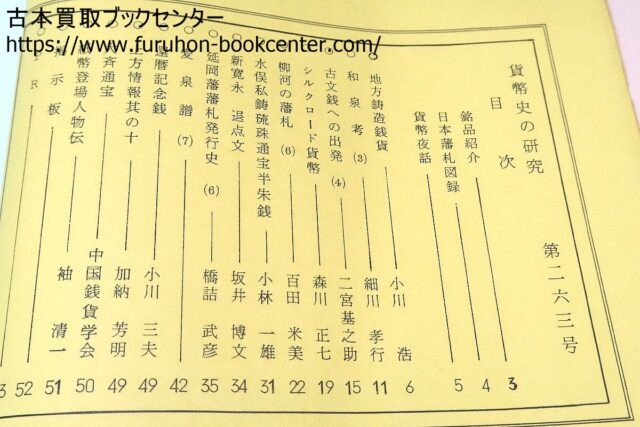 古本買取ブックセンター
https://www.furuhon-bookcenter.com/
貨幣史の研究 第二六三号
目次
銘品紹介 3
日本藩札図録 4
貨幣夜話 5
○地方鋳造銭貨 小川 浩 6
○和泉考 (3) 細川 孝行 11
○古文銭への出発 (4) 二宮基之助 15
○シルクロード貨幣 森川 正七 19
○柳河の藩札 (6) 百田 米美 22
○水俣私鋳琉球通宝半朱銭 小林 一雄 31
○新寛永 退点文 坂井 博文 34
○延岡藩藩札発行史 (6) 橋詰 武彦 35
○愛泉譜 (7) 42
還暦記念銭 小川 三夫 49
方情報其の十 加納 芳明 49
斉通宝 中国銭貨学会 50
幣登場人物伝 袖 清一 51
示板 52
R 3